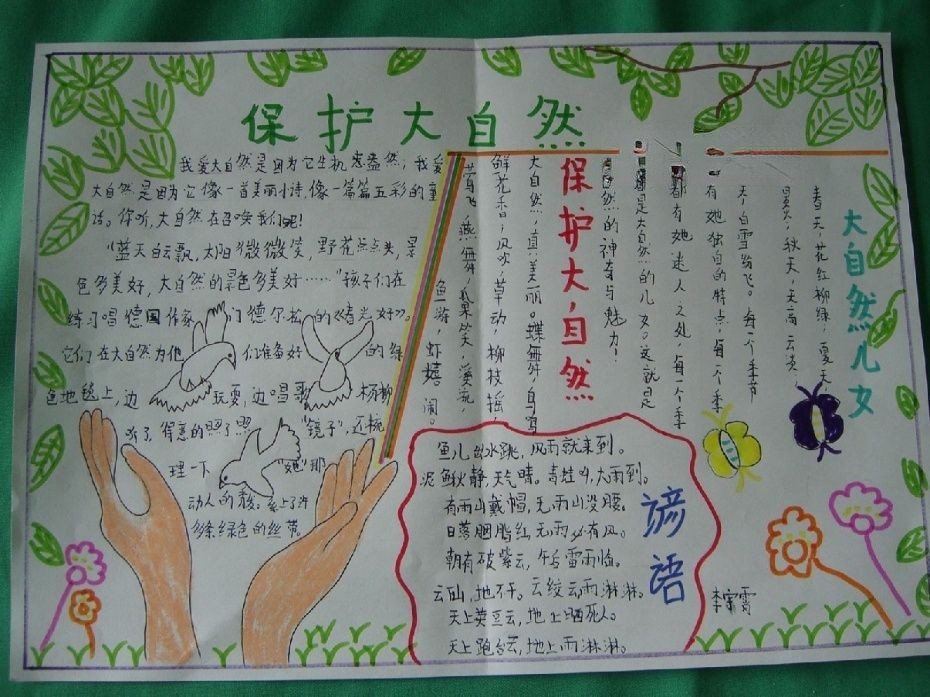 保护大自然
我爱大自然是因为它生机盎然；我爱
大自然是因为它像一首美丽小诗，像一篇篇五彩的童
话。你听，大自然在召唤我们呢！
“蓝天白云飘，太阳微微笑，野花点点头，景
色多美好，大自然的景色多美好……”孩子们在
练习唱德国作家门德尔松的《春光好》。
它们在大自然为他们准备好的绿
色地毯上，边玩耍，边唱歌。杨柳
听了得意的照了照“镜子”，还梳
理一下“她”那
动人的
多条绿色的丝带。
保护大自然
大自然，真美丽。蝶舞，鸟鸣
鲜花香，风吹，草动，柳枝摇
莺飞，燕舞，瓜果笑，溪流，
鱼游虾嬉闹。
大自然儿女
春天，花红柳绿，夏天
炎炎，秋天，天高云淡，
冬天白雪纷飞。每一个季节
有她独自的特点，每一个季
都有她迷人之处，每一个季
都是大自然的儿女。这就是
自然的神奇与魅力！
谚语
鱼儿出水跳，风雨就来到。
泥鳅静，天气晴。青蛙叫，大雨到。
有雨山戴帽，无雨山没腰。
日落胭脂红，无雨必有风。
朝有破紫云，午后雷雨临。
云下山，地不干。云绞云，雨淋淋。
天上黄豆云，地上晒死人。
天上跑台云，地上雨淋淋。
李霄霞